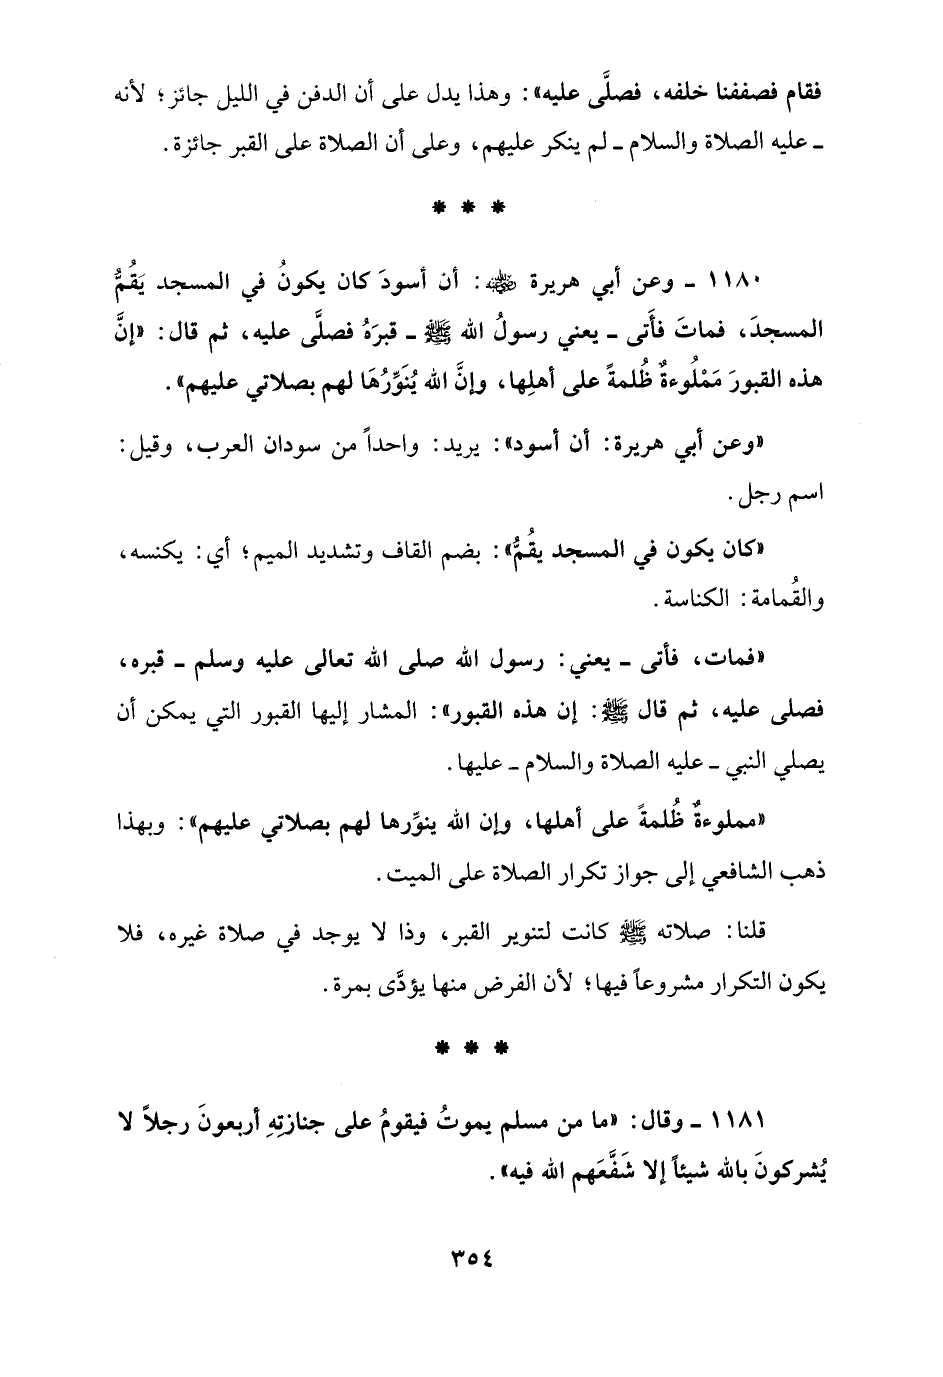 فقام فصففنا خلفه، فصلَّى عليه»: وهذا يدل على أن الدفن في الليل جائز؛ لأنه
ـ عليه الصلاة والسلام ـ لم ينكر عليهم، وعلى أن الصلاة على القبر جائزة.
* * *
١١٨٠ ـ وعن أبي هريرة ﷺ: أن أسودَ كان يكونُ في المسجد يَقُمُّ
المسجدَ، فماتَ فأَتى ـ يعني رسولُ الله ﷺ ـ قبرَهُ فصلَّى عليه، ثم قال: «إنَّ
هذه القبورَ مَمْلُوءةٌ ظُلمةً على أهلِها، وإنَّ الله يُنَوِّرُهَا لهم بصلاتي عليهم».
«وعن أبي هريرة: أن أسود»: يريد: واحداً من سودان العرب، وقيل:
اسم رجل.
«كان يكون في المسجد يقُمُّ»: بضم القاف وتشديد الميم؛ أي: يكنسه،
والقُمامة: الكناسة.
«فمات، فأتى ـ يعني: رسول الله صلى الله تعالى عليه وسلم ـ قبره،
فصلى عليه، ثم قال ﷺ: إن هذه القبور»: المشار إليها القبور التي يمكن أن
يصلي النبي ـ عليه الصلاة والسلام ـ عليها.
«مملوءةٌ ظُلمةً على أهلها، وإن الله ينوِّرها لهم بصلاتي عليهم»: وبهذا
ذهب الشافعي إلى جواز تكرار الصلاة على الميت.
قلنا: صلاته ﷺ كانت لتنوير القبر، وذا لا يوجد في صلاة غيره، فلا
يكون التكرار مشروعاً فيها؛ لأن الفرض منها يؤدَّى بمرة.
* * *
١١٨١ ـ وقال: «ما من مسلم يموتُ فيقومُ على جنازتِهِ أربعونَ رجلاً لا
يُشركونَ بالله شيئاً إلا شَفَّعَهم الله فيه».
٣٥٤